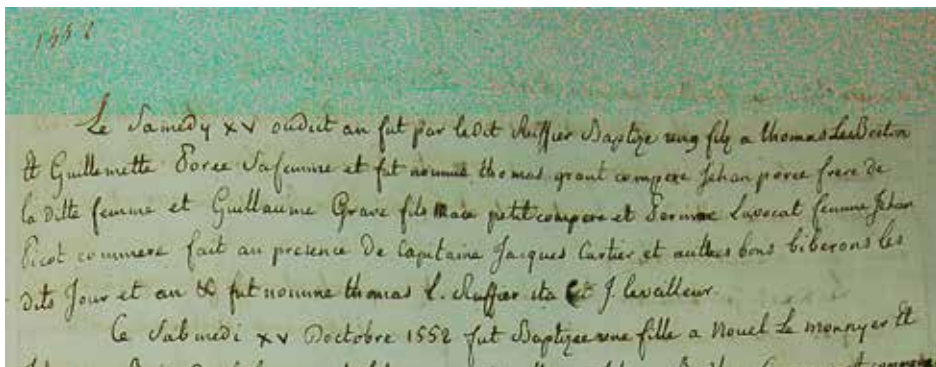 1552
Le Samedy xv oudict an fut par ledit Ruffier Baptize ung filz a thomas Le Breton
et Guillemette Poree Safemme et fut nomme thomas grant compere Jehan poree frere de
la ditte femme et Guillaume Grave fils petit compere et Perrine Lavocat femme Jehan
Picot commere fait au presence de Capitaine Jacques Cartier et autres bons biberons les
dits Jour et an fut nomme thomas L. Ruffier ita J. levalleur.
Ce Sabmedi xv Doctobre 1552 fut Baptizee une fille a Nouel Le monnyer Et